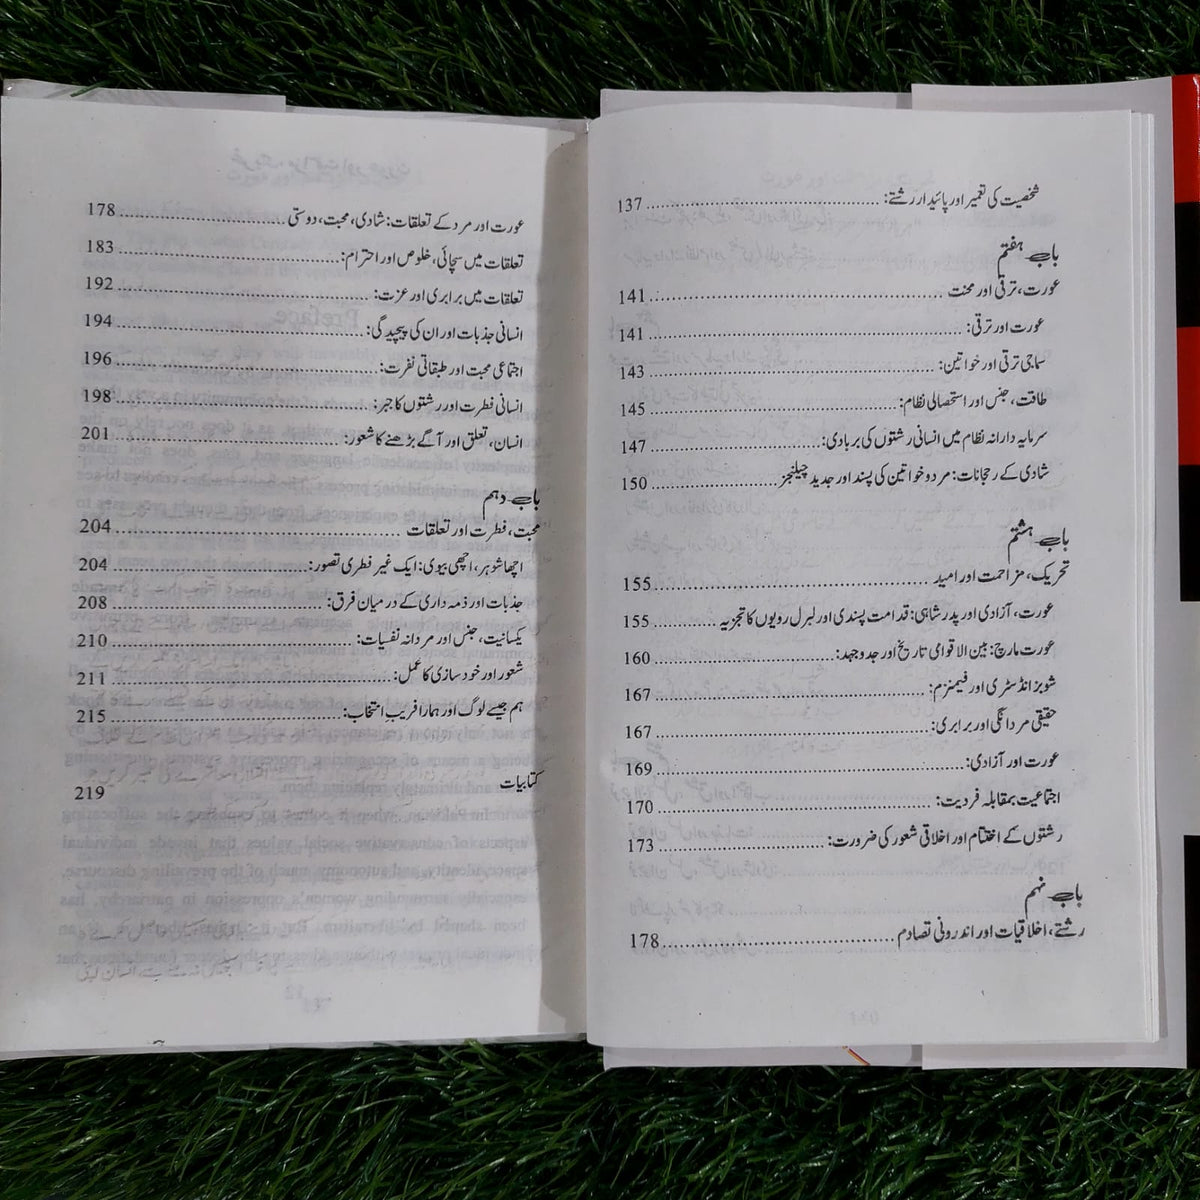 شخصیت کی تعمیر اور پائیدار رشتے: 137
باب ہفتم
عورت، ترقی اور محنت 141
عورت اور ترقی: 141
سماجی ترقی اور خواتین: 143
طاقت، جنس اور استحصالی نظام: 145
سرمایہ دارانہ نظام میں انسانی رشتوں کی بربادی: 147
شادی کے رجحانات: مرد و خواتین کی پسند اور جدید چیلنجز 150
باب ہشتم
تحریک، مزاحمت اور امید 155
عورت، آزادی اور پدر شاہی: قدامت پسندی اور لبرل رویوں کا تجزیہ 155
عورت مارچ: بین الاقوامی تاریخ اور جدوجہد: 160
شوبز انڈسٹری اور فیمنزم: 167
حقیقی مردانگی اور برابری: 167
عورت اور آزادی: 169
اجتماعیت بمقابلہ فردیت: 170
رشتوں کے اختتام اور اخلاقی شعور کی ضرورت: 173
باب نہم
رشتے، اخلاقیات اور اندرونی تصادم 178
عورت اور مرد کے تعلقات: شادی، محبت، دوستی 178
تعلقات میں سچائی، خلوص اور احترام: 183
تعلقات میں برابری اور عزت: 192
انسانی جذبات اور ان کی پیچیدگی: 194
اجتماعی محبت اور طبقاتی نفرت: 196
انسانی فطرت اور رشتوں کا جبر: 198
انسان، تعلق اور آگے بڑھنے کا شعور: 201
باب دہم
محبت، فطرت اور تعلقات 204
اچھا شوہر، اچھی بیوی: ایک غیر فطری تصور: 204
جذبات اور ذمہ داری کے درمیان فرق: 208
یکسانیت، جنس اور مردانہ نفسیات: 210
شعور اور خود سازی کا عمل: 211
ہم جیسے لوگ اور ہمارا فریب انتخاب: 215
کتابیات 219